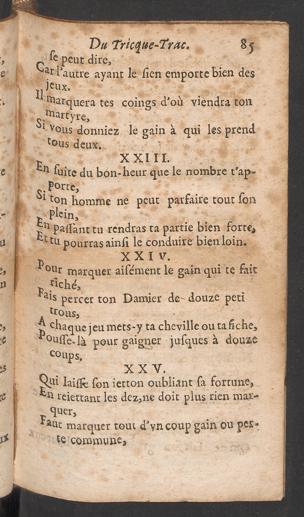 Du Tricque-Trac. 85
se peut dire,
Car l'autre ayant le sien emporte bien des
jeux.
Il marquera tes coings d'où viendra ton
martyre,
Si vous donniez le gain à qui les prend
tous deux.
XXIII.
En suite du bon-heur que le nombre t'ap-
porte,
Si ton homme ne peut parfaire tout son
plein,
En passant tu rendras ta partie bien forte,
Et tu pourras ainsi le conduire bien loin.
XXIV.
Pour marquer aisément le gain qui te fait
riché,
Fais percer ton Damier de douze peti
trous,
A chaque jeu mets-y ta cheville ou ta fiche,
Pousse-là pour gaigner jusques à douze
coups,
XXV.
Qui laisse son ietton oubliant sa fortune,
En reiettant les dez, ne doit plus rien mar-
quer,
Faut marquer tout d'vn coup gain ou per-
te commune,